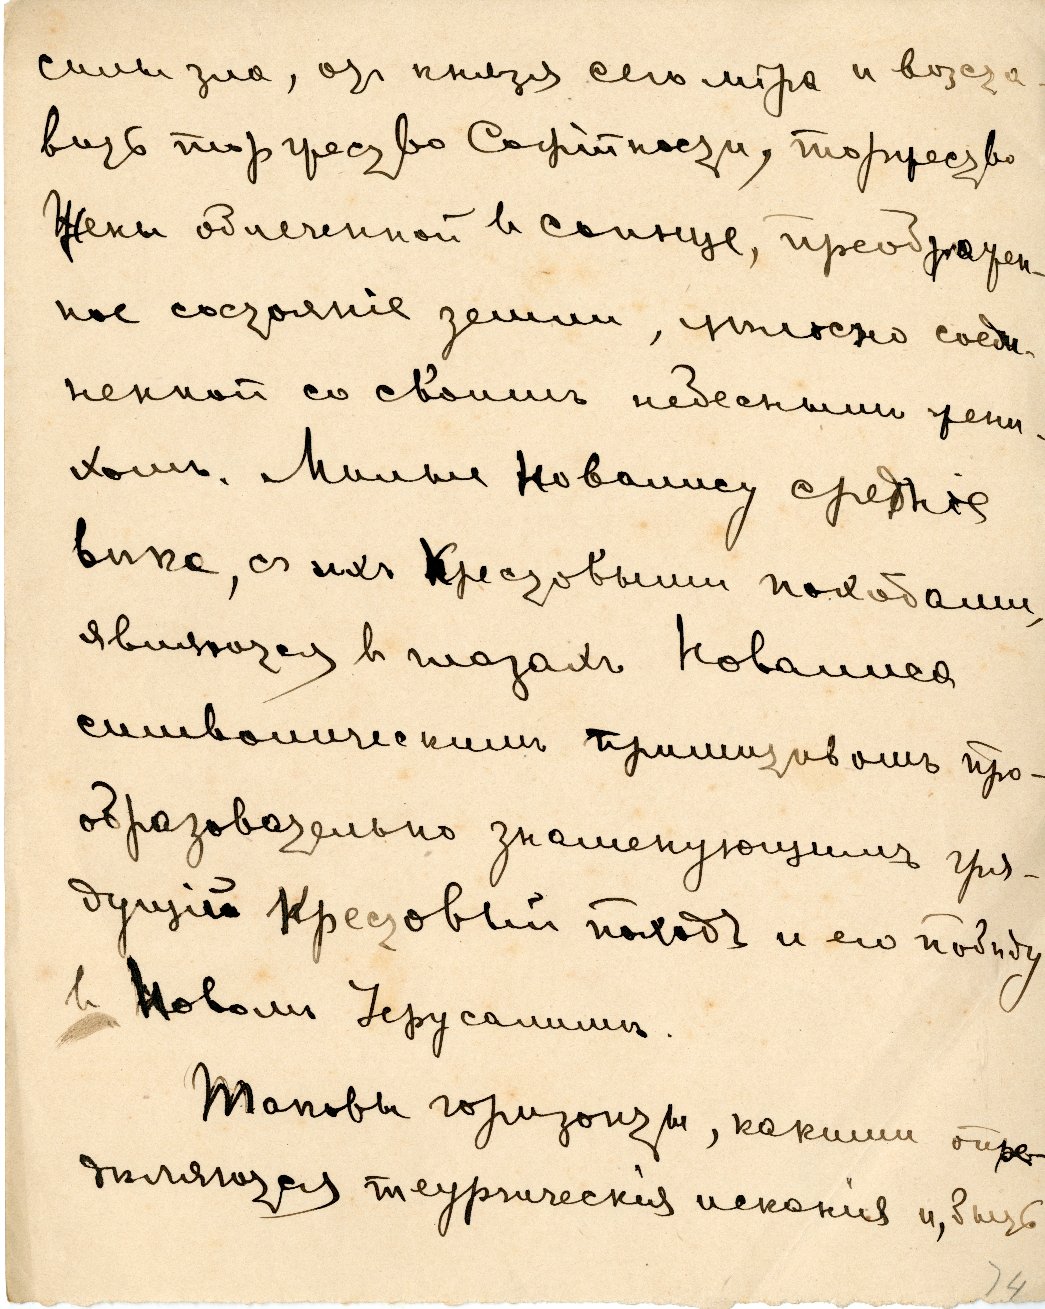 силы зла, от князя сего міра и возста-
вить торжество Софійности, торжество
Жены облеченной в солнце, преображен-
ное состояніе земли, цѣлостно соеди-
ненной со своимъ небеснымъ жени-
хомъ. Милые Новалису средніе
вѣка, съ ихъ Крестовыми походами,
являются в глазахъ Новалиса
символическимъ примитивомъ про-
образовательно знаменующимъ гря-
дущій Крестовый походъ и его побѣду
в Новомъ Іерусалимѣ.
Таковы горизонты, какими опре-
дѣляются теургическія исканія и, быть
74